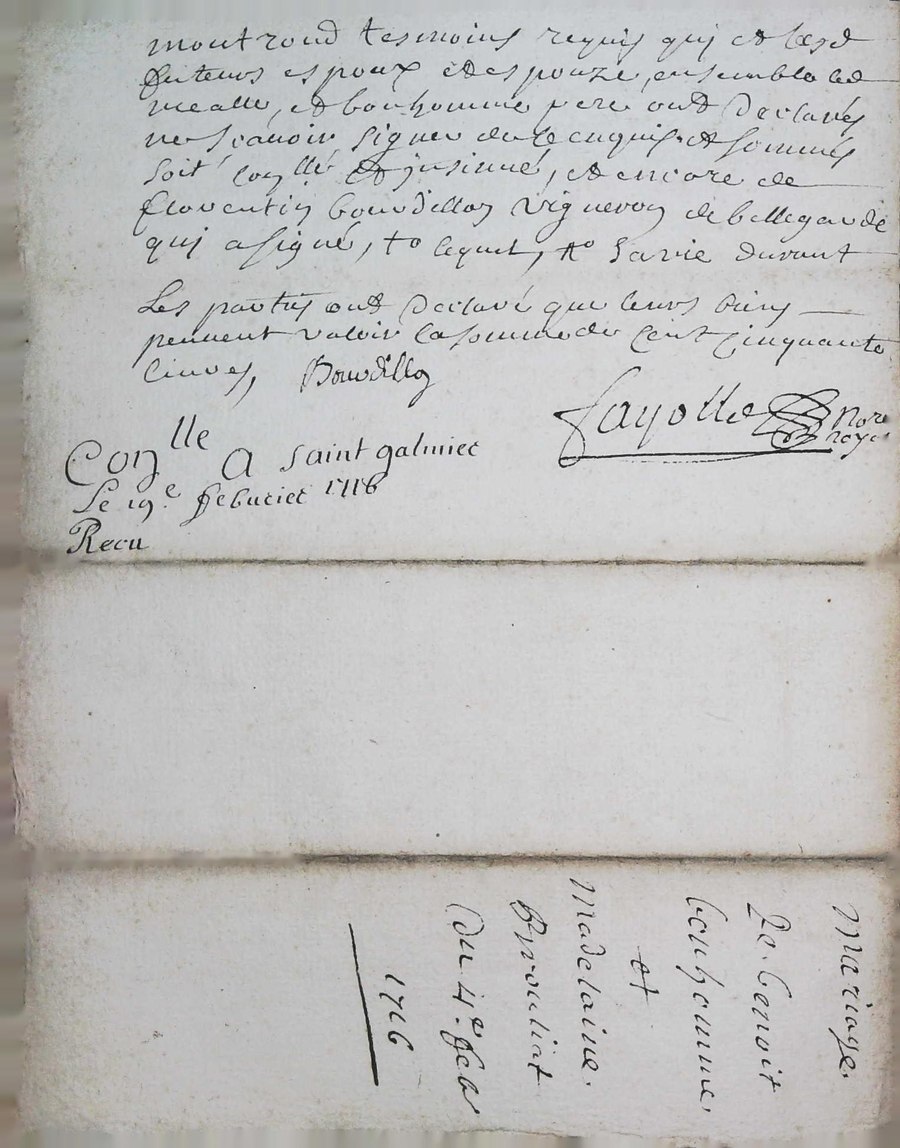 montrond tesmoins requis qui et lesd
futeurs espoux et espouze, ensemble led
mealle, et bonhomme pere ont declarés
ne scavoir signer de ce enquis et sommés
soit conllé et insinué, et encore de
florentin bourdillon vigneron de bellegarde
qui a signé, to lequel, to sa vie durant
Les partis ont declaré que leurs biens
peuvent valoir la somme de cent cinquante
livres, Bourdillon
Fayolle Nore royal
Conlle A saint galmier
Le 19e. febvrier 1716
Recu
Mariage.
De. benoit
bonhomme,
et
Madelaine.
du 4e. feb
1716